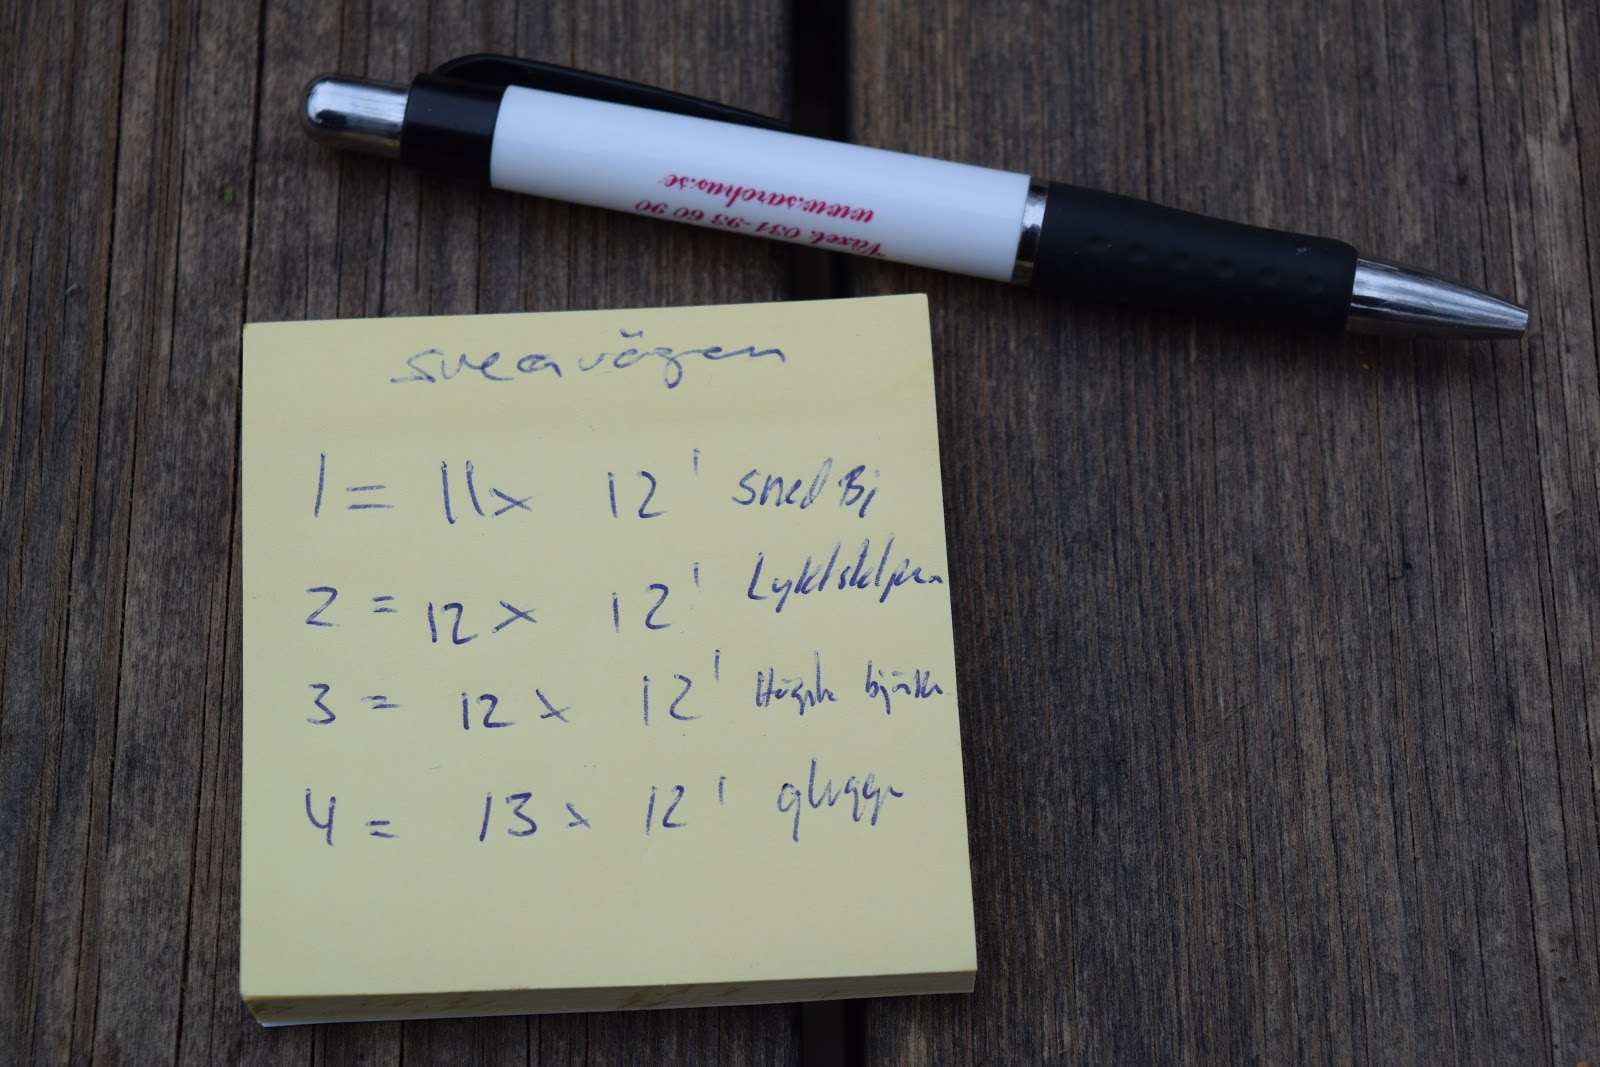 www.sarohus.se
Växel. 031-93 60 90
sveavägen
1 = 11x 12' sned Bj
2 = 12 x 12' Lyktstolpen
3 = 12 x 12' Högsta björken
4 = 13 x 12' glugge